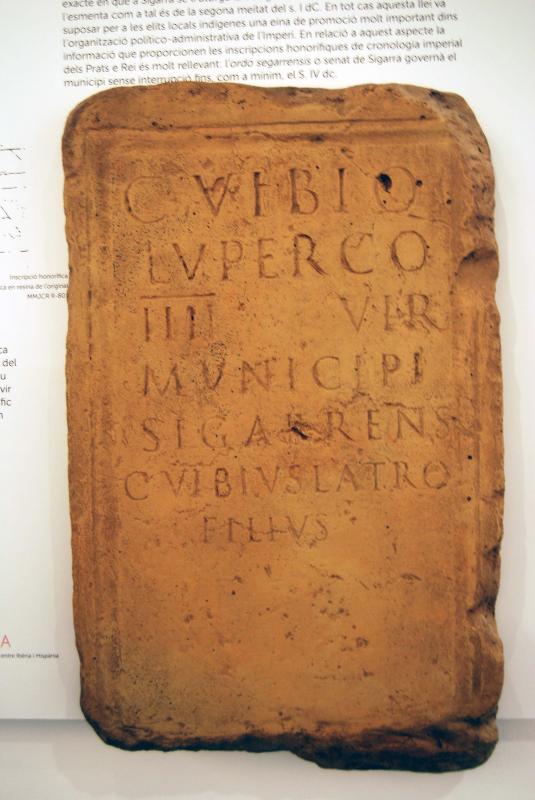 l'esmenta com a tal és de la segona meitat del s. I dC. En tot cas aquesta llei va
suposar per a les elits locals indígenes una eina de promoció molt important dins
l'organització político-administrativa de l'Imperi. En relació a aquest aspecte la
informació que proporcionen les inscripcions honorífiques de cronologia imperial
dels Prats e Rei és molt rellevant: l'ordo segarrensis o senat de Sigarra governà el
municipi sense interrupció fins, com a mínim, el S. IV dc.
C VIBIO
LVPERCO
IIII VIR
MUNICIPI
SIGARRENS
C VIBIVS LATRO
FILIVS
Inscripció honorífica
ca en resina de l'original
MMJCR R-801
ca
del
u
vir
fic
n
A
entre Ibèria i Hispània